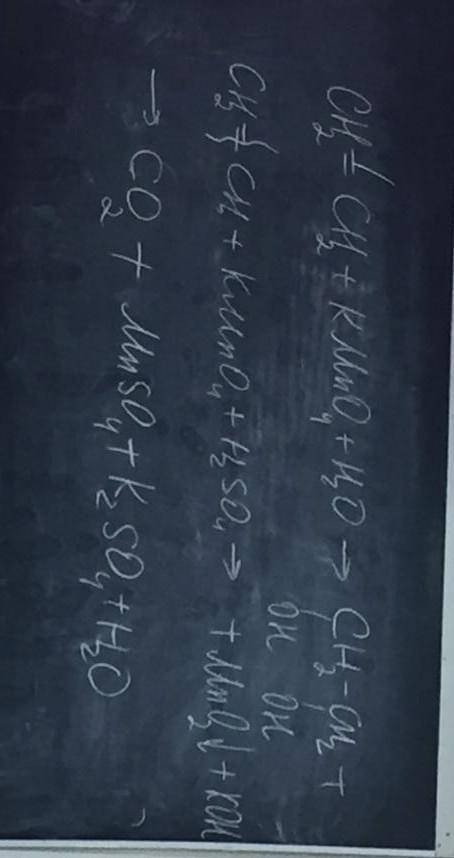 CH₂=CH₂ + KMnO₄ + H₂O → CH₂-CH₂ +
OH OH
+ MnO₂↓ + KOH
CH₂=CH₂ + KMnO₄ + H₂SO₄ →
→ CO₂ + MnSO₄ + K₂SO₄ + H₂O